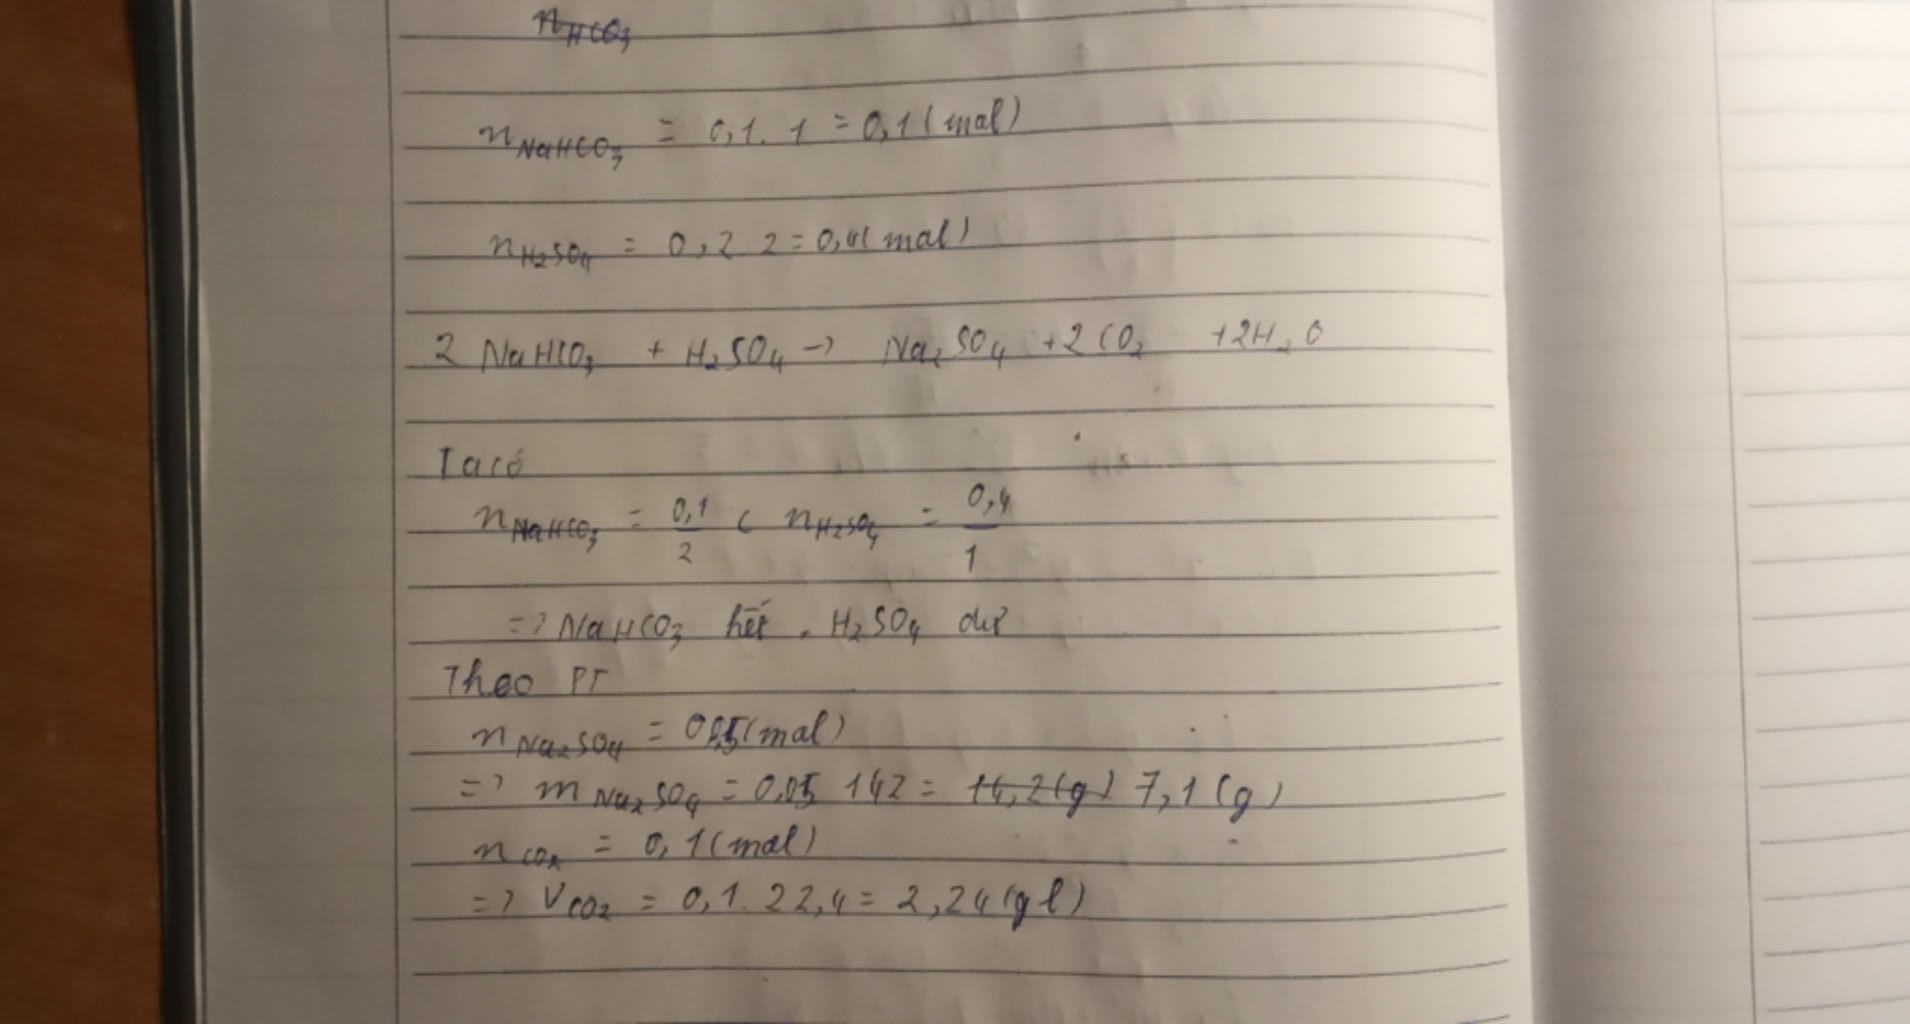 n HCO3
n NaHCO3 = 0,1. 1 = 0,1 (mol)
n H2SO4 = 0,2 2 = 0,4 (mol)
2 NaHCO3 + H2SO4 -> Na2SO4 + 2CO2 + 2H2O
Ta có
n NaHCO3 = 0,1/2 < n H2SO4 = 0,4/1
=> NaHCO3 hết, H2SO4 dư
Theo PT
n Na2SO4 = 0,05 (mol)
=> m Na2SO4 = 0,05 142 = 14,2 (g) 7,1 (g)
n CO2 = 0,1 (mol)
=> V CO2 = 0,1. 22,4 = 2,24 (g l)